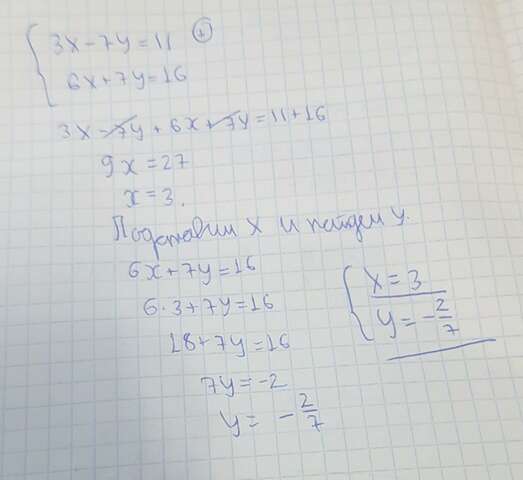 3x-7y=11 (+)
6x+7y=16
3x-7y+6x+7y=11+16
9x=27
x=3.
Подставим x и найдем y.
6x+7y=16
6·3+7y=16
18+7y=16
7y=-2
y= -2/7
x=3
y=-2/7